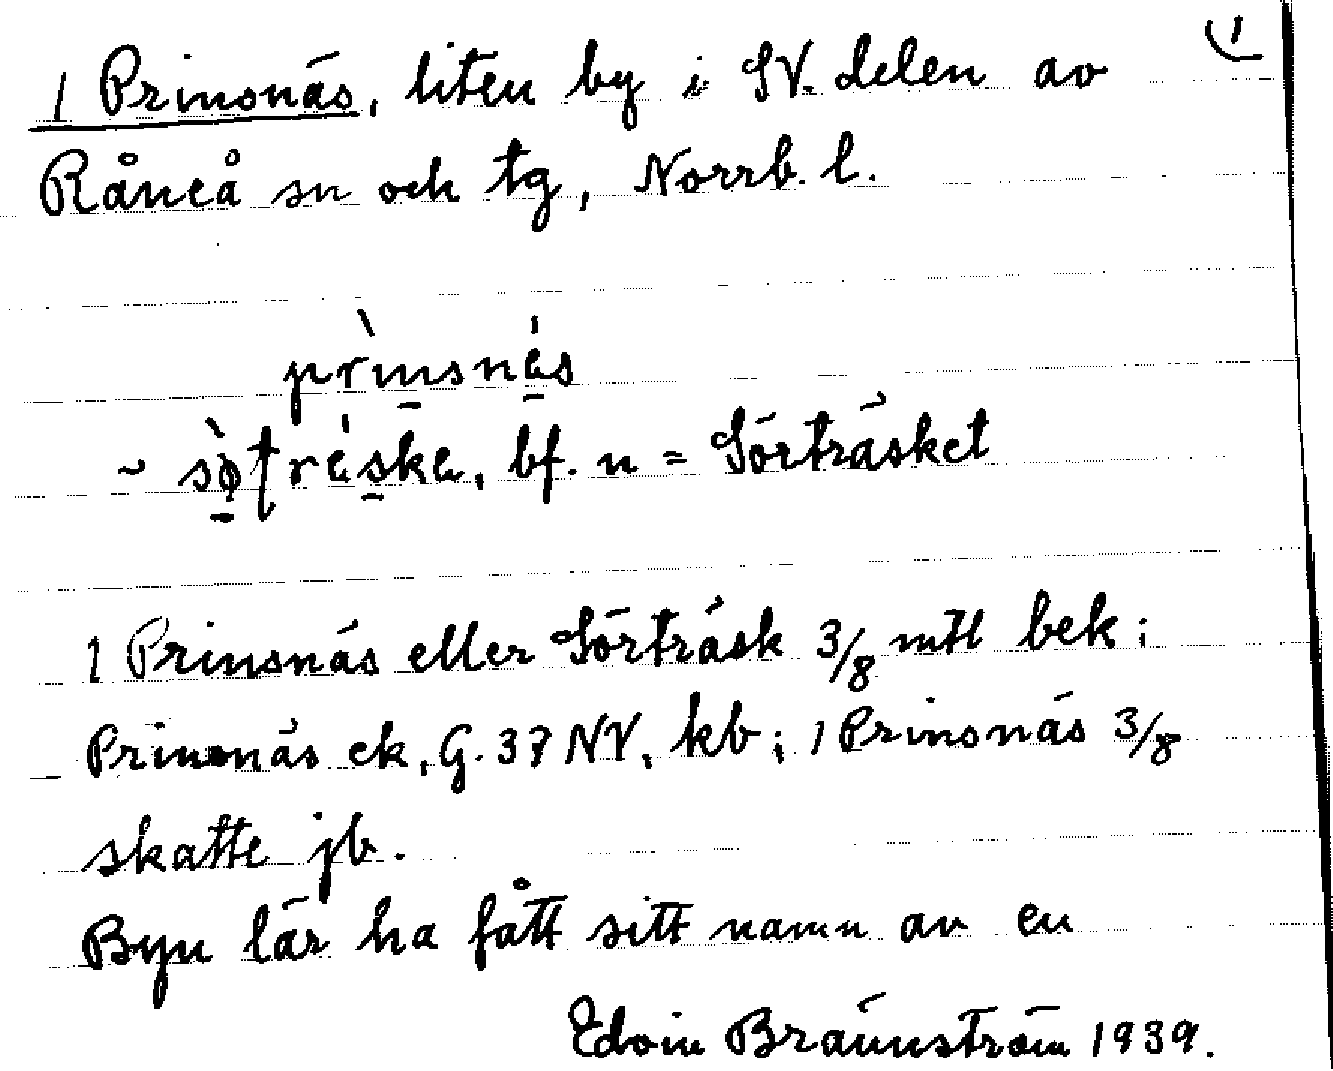 1
1 Prinsnäs, liten by i SV. delen av
Råneå sn och tg, Norrb. l.
prìnsnés
~ sø̀tréska, bf. n = Sörträsket
1 Prinsnäs eller Sörträsk 3/8 mtl bek;
Prinsnäs ek, G. 37 NV, kb; 1 Prinsnäs 3/8
skatte jb.
Byn lär ha fått sitt namn av en
Edvin Brännström 1939.